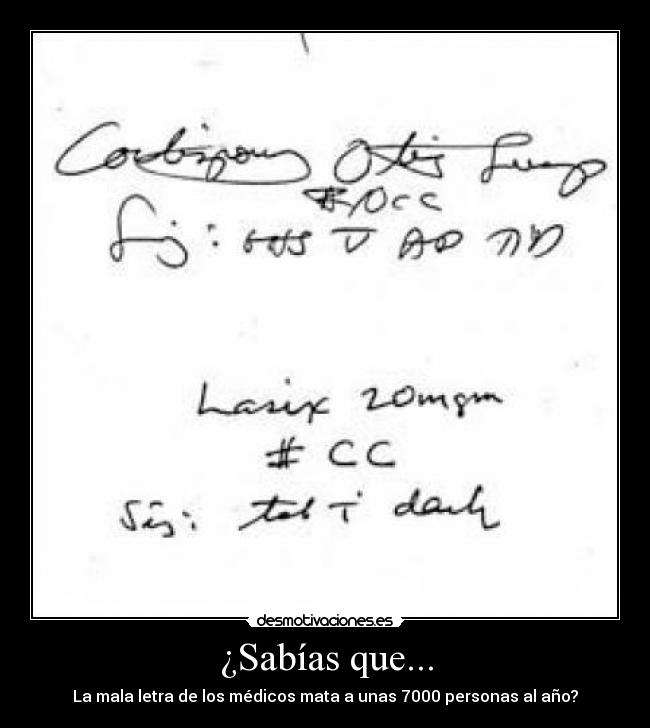 Cortisporin Otic Susp
#10cc
Sig: gtts V AD
Lasix 20mgm
# CC
Sig: tab i daily
desmotivaciones.es
¿Sabías que...
La mala letra de los médicos mata a unas 7000 personas al año?